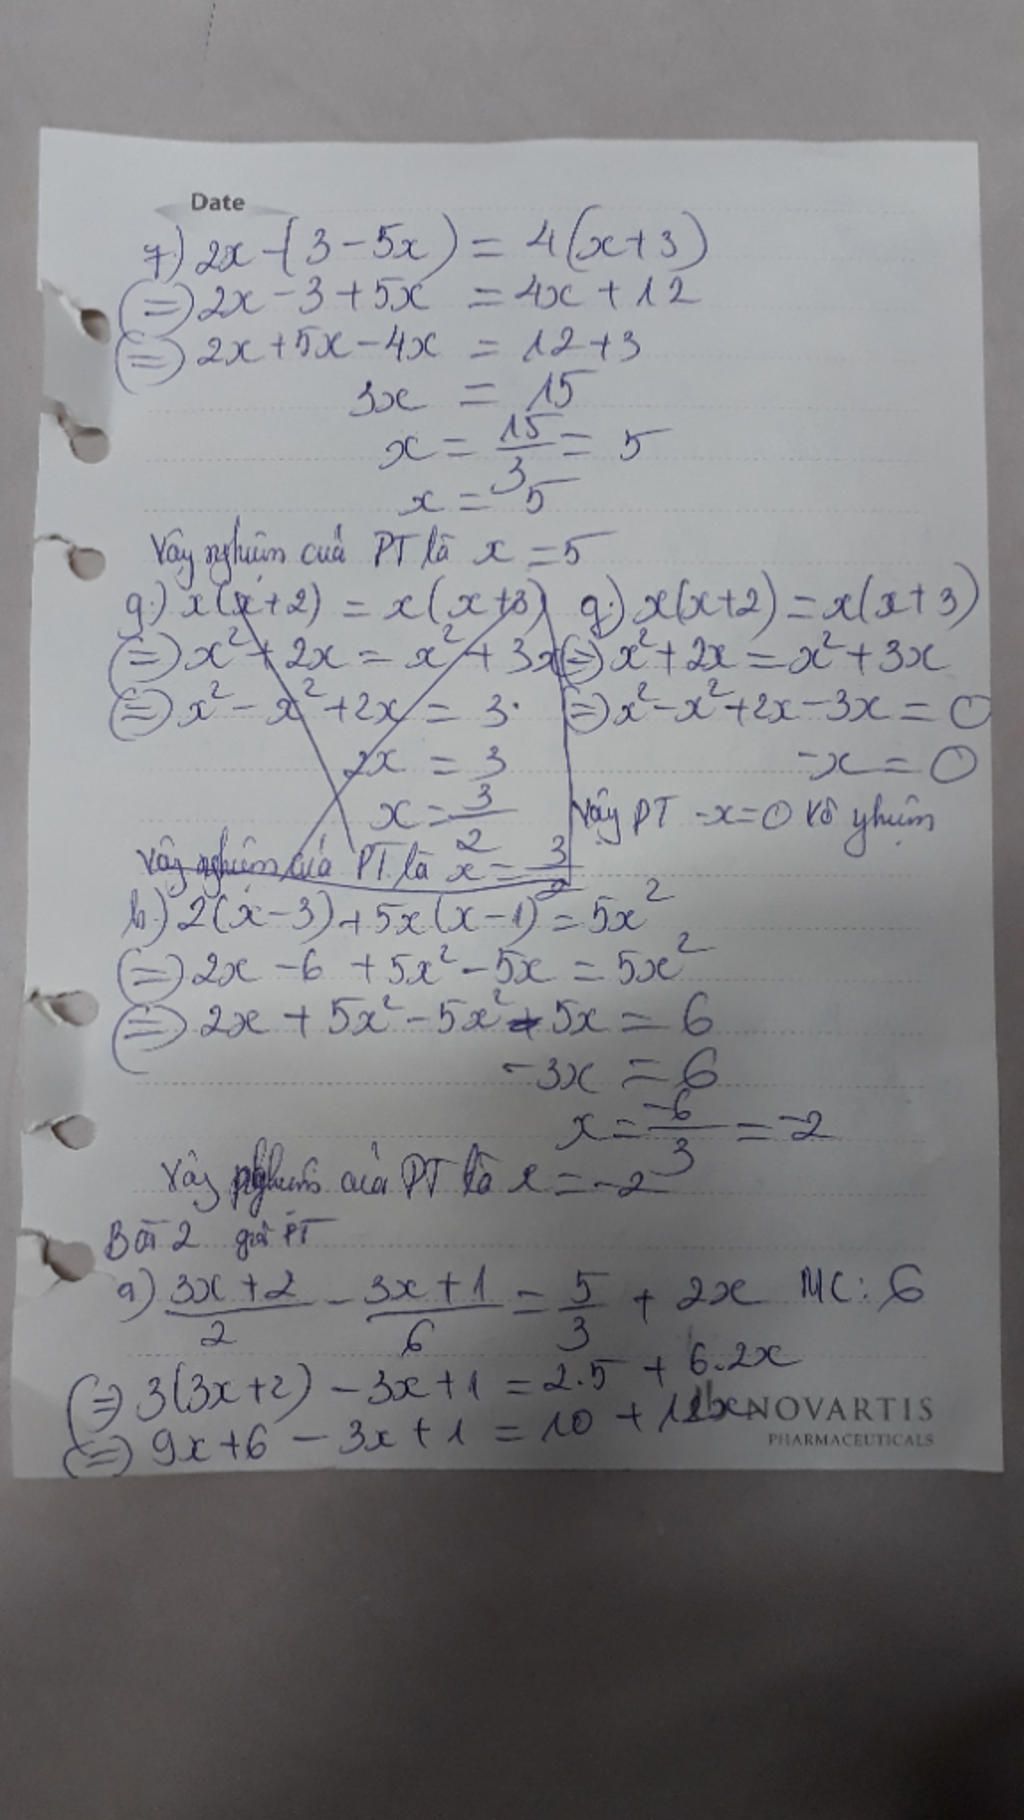 Date
7.) 2x - (3 - 5x) = 4(x+3)
(=) 2x - 3 + 5x = 4x + 12
(=) 2x + 5x - 4x = 12 + 3
3x = 15
x = 15/3 = 5
x = 5
Vậy nghiệm của PT là x = 5
g.) x(x+2) = x(x+3)
(=) x² + 2x = x² + 3x
(=) x² - x² + 2x = 3.
2x = 3
x = 3/2
Vậy nghiệm của PT là x = 3/2
g.) x(x+2) = x(x+3)
(=) x² + 2x = x² + 3x
(=) x² - x² + 2x - 3x = 0
-x = 0
Vậy PT -x = 0 vô nghiệm
h.) 2(x-3) + 5x(x-1) = 5x²
(=) 2x - 6 + 5x² - 5x = 5x²
(=) 2x + 5x² - 5x² - 5x = 6
-3x = 6
x = -6/3 = -2
Vậy nghiệm của PT là x = -2
Bài 2 giải PT
a) 3x+2/2 - 3x+1/6 = 5/3 + 2x MC: 6
(=) 3(3x+2) - 3x+1 = 2.5 + 6.2x
(=) 9x+6 - 3x+1 = 10 + 12x
NOVARTIS
PHARMACEUTICALS